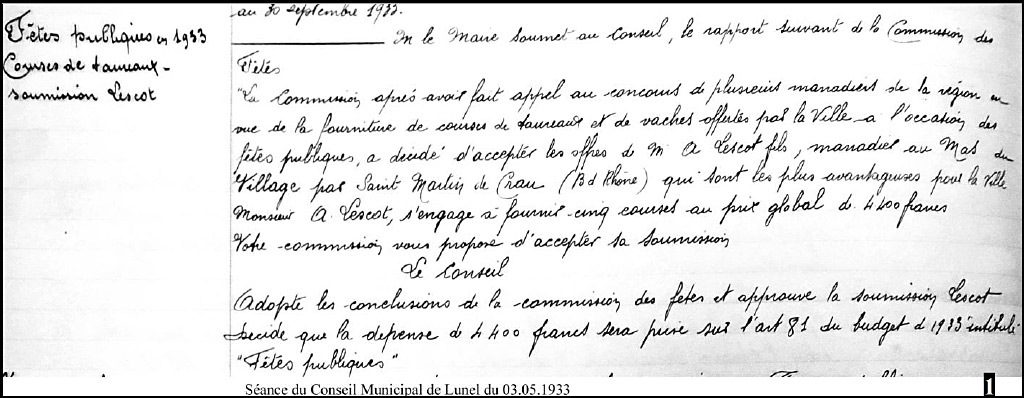 Fêtes publiques en 1933
Courses de taureaux -
soumission Lescot
au 30 septembre 1933.
M le Maire soumet au Conseil, le rapport suivant de la Commission des
Fêtes
"La Commission après avoir fait appel au concours de plusieurs manadiers de la région en
vue de la fourniture de courses de taureaux et de vaches offertes par la Ville a l'occasion des
fêtes publiques, a décidé d'accepter les offres de M A Lescot fils, manadier au Mas du
Village par Saint Martin de Crau (Bd Rhône) qui sont les plus avantageuses pour la Ville
Monsieur A. Lescot, s'engage à fournir cinq courses au prix global de 4400 francs
Votre commission vous propose d'accepter sa soumission
Le Conseil
Adopte les conclusions de la commission des fêtes et approuve la soumission Lescot
Décide que la depense de 4400 francs sera prise sur l'art 81 du budget de 1933 intitulé
"Fêtes publiques"
Séance du Conseil Municipal de Lunel du 03.05.1933
1